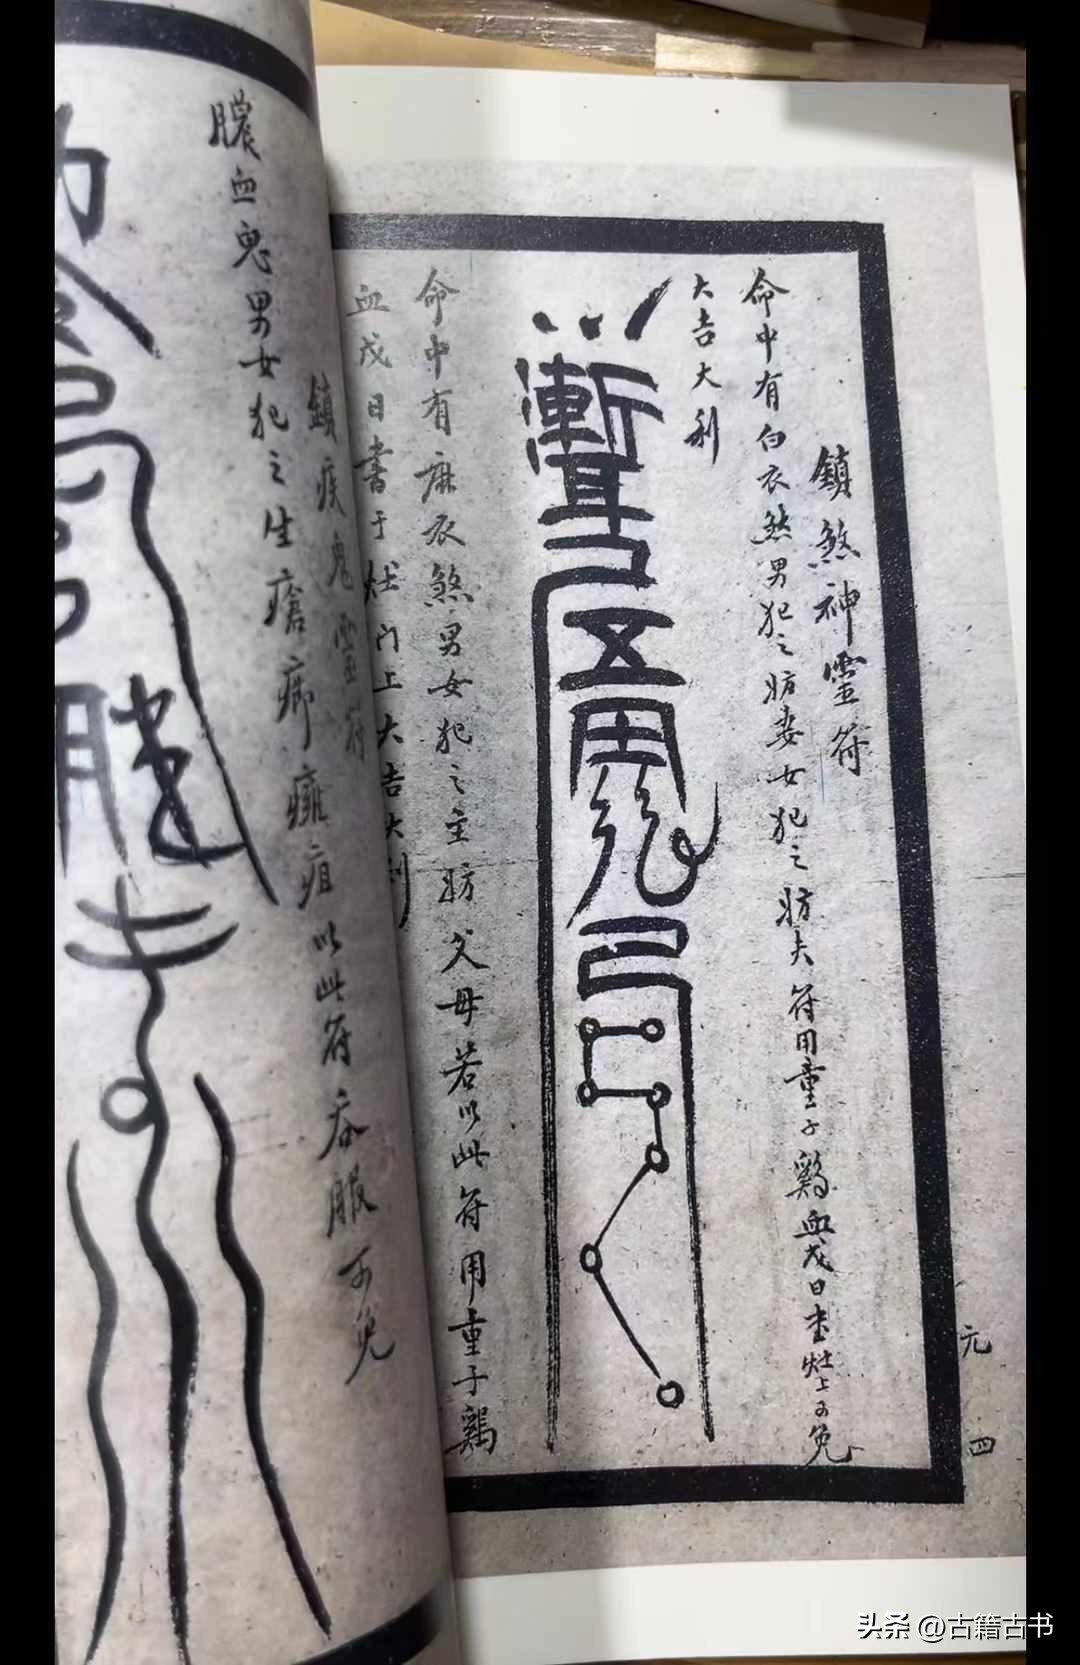 鎮煞神靈符
命中有白衣煞男犯之妨妻女犯之妨夫符用童子鷄血戊日书灶上可免
大吉大利
命中有麻衣煞男女犯之主妨父母若以此符用童子鷄
血戊日書于灶门上大吉大利
鎮疾鬼靈符
膿血鬼男女犯之生瘡癤癰疽以此符吞服可免
元
四
头条 @古籍古书